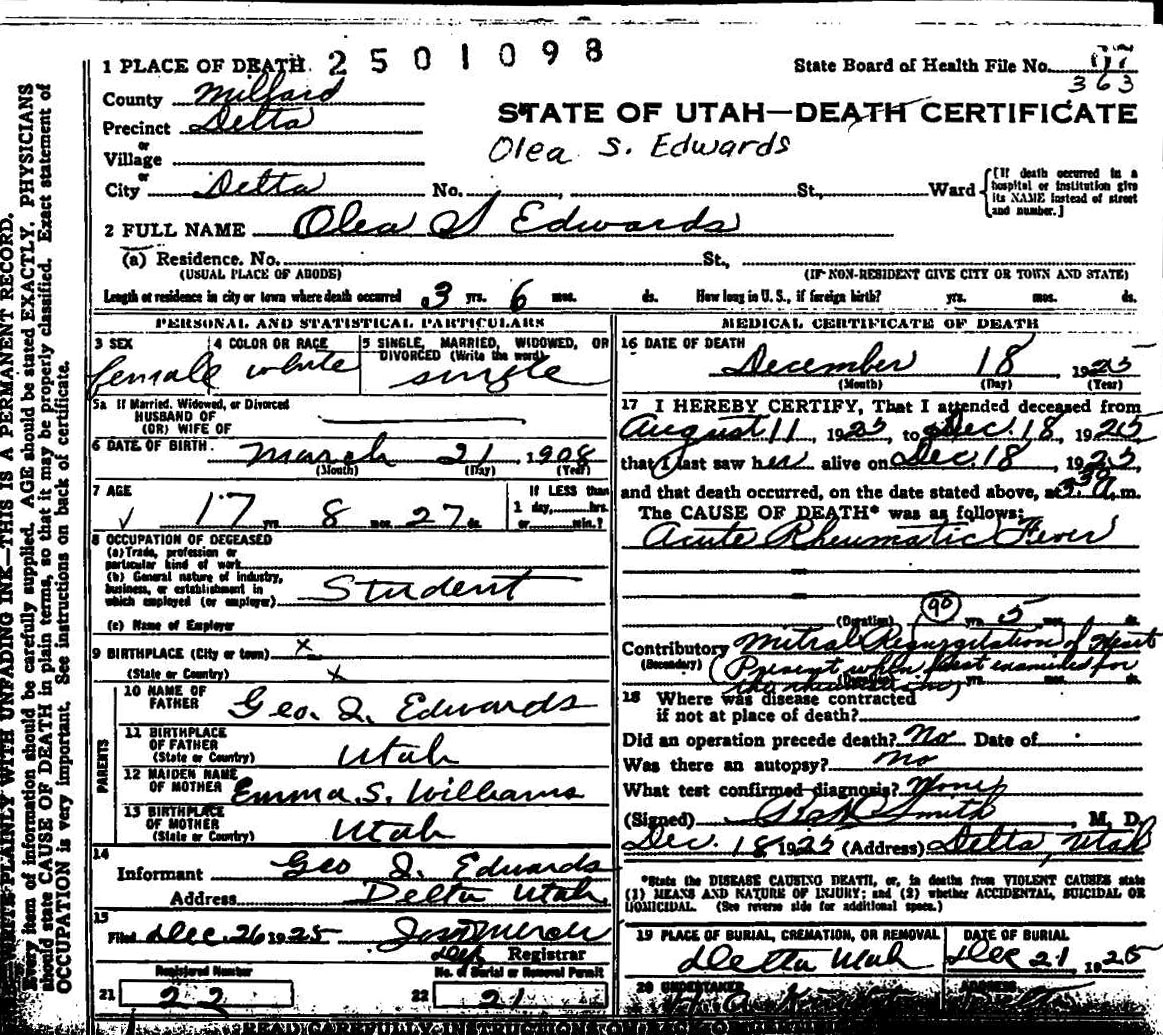 1 PLACE OF DEATH 2501098
State Board of Health File No. 363
County Millard
STATE OF UTAH—DEATH CERTIFICATE
Precinct Delta
Olea S. Edwards
or
Village
or
City Delta No. , St., Ward {[If death occurred in a hospital or institution give its NAME instead of street and number.]
2 FULL NAME Olea S Edwards
(a) Residence. No. St.,
(USUAL PLACE OF ABODE) (IF NON-RESIDENT GIVE CITY OR TOWN AND STATE)
Length of residence in city or town where death occurred 3 yrs. 6 mos. ds. How long in U. S., if foreign birth? yrs. mos. ds.
PERSONAL AND STATISTICAL PARTICULARS
3 SEX 4 COLOR OR RACE 5 SINGLE, MARRIED, WIDOWED, OR
DIVORCED (Write the word)
female white single
5a If Married, Widowed, or Divorced
HUSBAND OF
(OR) WIFE OF
6 DATE OF BIRTH March 21 1908
(Month) (Day) (Year)
7 AGE If LESS than
17 yrs. 8 mos. 27 ds. 1 day, hrs.
or min.?
8 OCCUPATION OF DECEASED
(a) Trade, profession or
particular kind of work
(b) General nature of industry,
business, or establishment in
which employed (or employer) Student
(c) Name of Employer
9 BIRTHPLACE (City or town) x
(State or Country) x
PARENTS
10 NAME OF
FATHER Geo. Edwards
11 BIRTHPLACE
OF FATHER
(State or Country) Utah
12 MAIDEN NAME
OF MOTHER Emma S. Williams
13 BIRTHPLACE
OF MOTHER
(State or Country) Utah
14
Informant Geo Edwards
Address Delta Utah
15
Filed Dec. 26 1925
Dep Registrar
Registered Number No. of Burial or Removal Permit
21 22 22 21
MEDICAL CERTIFICATE OF DEATH
16 DATE OF DEATH
December 18, 1925
(Month) (Day) (Year)
17 I HEREBY CERTIFY, That I attended deceased from
August 11, 1925, to Dec. 18, 1925
that I last saw her alive on Dec. 18, 1925,
and that death occurred, on the date stated above, at m.
The CAUSE OF DEATH* was as follows:
Acute Rheumatic Fever
90
(Duration) yrs. 5 mos. ds.
Contributory Mitral Regurgitation of Heart
(Secondary) (Present when first examined for
(Duration) yrs. mos. ds.
the rheumatism)
18 Where was disease contracted
if not at place of death?
Did an operation precede death? No Date of
Was there an autopsy? no
What test confirmed diagnosis?
(Signed) Smith, M. D.
Dec. 18, 1925 (Address) Delta, Utah
*State the DISEASE CAUSING DEATH, or, in deaths from VIOLENT CAUSES state
(1) MEANS AND NATURE OF INJURY; and (2) whether ACCIDENTAL, SUICIDAL OR
HOMICIDAL. (See reverse side for additional space.)
19 PLACE OF BURIAL, CREMATION, OR REMOVAL DATE OF BURIAL
Delta Utah Dec 21, 1925
20 UNDERTAKER ADDRESS
WRITE PLAINLY WITH UNFADING INK—THIS IS A PERMANENT RECORD.
Every item of information should be carefully supplied. AGE should be stated EXACTLY. PHYSICIANS
should state CAUSE OF DEATH in plain terms, so that it may be properly classified. Exact statement of
OCCUPATION is very important. See instructions on back of certificate.
READ CAREFULLY INSTRUCTIONS ON BACK OF